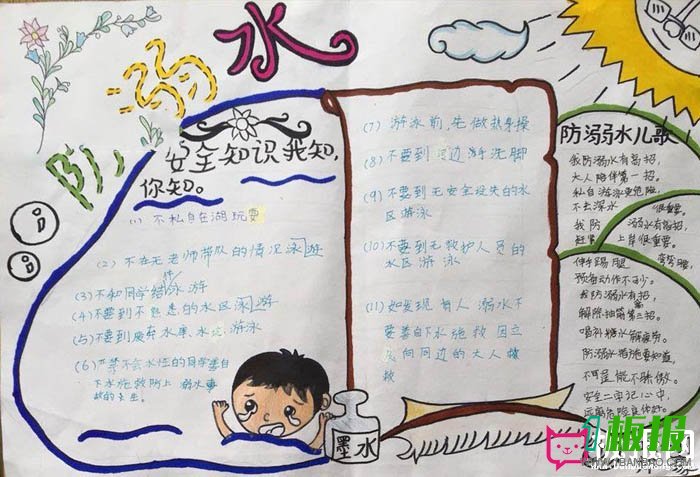 防溺水
安全知识我知,
你知。
(1) 不私自在湖玩耍
(2) 不在无老师带队的情况泳游
(3) 不和同学结泳游
伴
(4) 不要到不熟悉的水区泳游
(5) 不要到废弃水库、水坑、游泳
(6) 严禁不会水性的同学善自
下水施救防止 溺水事
故的发生。
(7) 游泳前,先做热身操
(8) 不要到 边游洗脚
(9) 不要到无安全设失的水
区游泳
(10) 不要到无救护人员的
水区游泳
(11) 如发现 有人 溺水不
要善自下水施救 因立
向同边的大人
救
墨水
防溺水儿歌
我防溺水有高招,
大人陪伴第一招。
私自游泳更危险,
不去深水 很重要。
我防 溺水有高招,
上岸很重要。
伸手踢腿 弯弯腰,
预备动作不可少。
我防溺水有高招,
解除抽筋第三招。
喝补糖水解疲劳。
防溺水措施要知道,
不可逞能不骄傲。
安全二字记心中,
板报